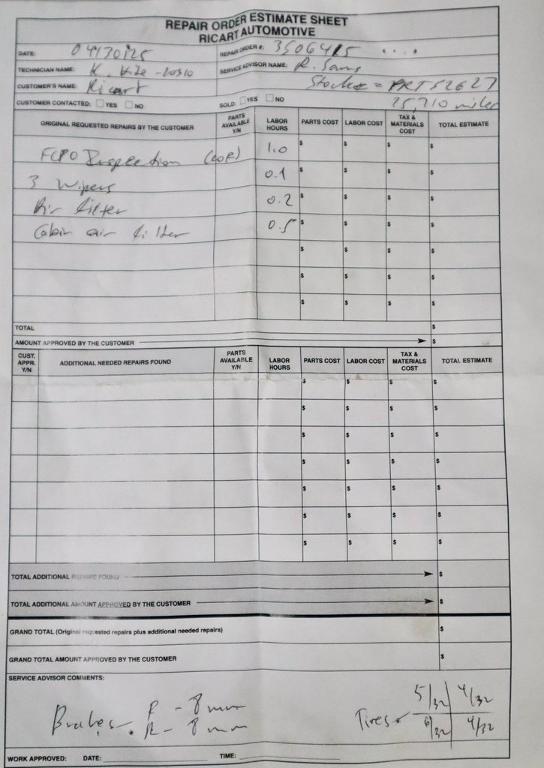 REPAIR ORDER ESTIMATE SHEET
RICART AUTOMOTIVE
DATE: 04/30/25 REPAIR ORDER #: 3506415
TECHNICIAN NAME: K. SERVICE ADVISOR NAME: R. Sams
CUSTOMER'S NAME: Ricart Stock# = PRT52627
CUSTOMER CONTACTED: YES NO SOLD: YES NO 25,710 miles
ORIGINAL REQUESTED REPAIRS BY THE CUSTOMER PARTS AVAILABLE Y/N LABOR HOURS PARTS COST LABOR COST TAX & MATERIALS COST TOTAL ESTIMATE
FCPO Inspection 1.0 $ $ $ $
3 Wipers 0.1 $ $ $ $
Air filter 0.2 $ $ $ $
Cabin air filter 0.5 $ $ $ $
$ $ $ $
$ $ $ $
$ $ $ $
TOTAL $
AMOUNT APPROVED BY THE CUSTOMER $
CUST. APPR. Y/N ADDITIONAL NEEDED REPAIRS FOUND PARTS AVAILABLE Y/N LABOR HOURS PARTS COST LABOR COST TAX & MATERIALS COST TOTAL ESTIMATE
$ $ $ $
$ $ $ $
$ $ $ $
$ $ $ $
$ $ $ $
$ $ $ $
$ $ $ $
TOTAL ADDITIONAL REPAIRS FOUND $
TOTAL ADDITIONAL AMOUNT APPROVED BY THE CUSTOMER $
GRAND TOTAL (Original requested repairs plus additional needed repairs) $
GRAND TOTAL AMOUNT APPROVED BY THE CUSTOMER $
SERVICE ADVISOR COMMENTS:
Brakes F - 8 mm Tires 5/32 4/32
R - 8 mm 6/32 4/32
WORK APPROVED: DATE: TIME: